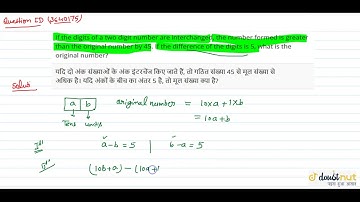 Question ID (3640575)
If the digits of a two digit number are interchanged, the number formed is greater
than the original number by 45. If the difference of the digits is 5, what is the
original number?
यदि दो अंक संख्याओं के अंक इंटरचेंज किए जाते हैं, तो गठित संख्या 45 से मूल संख्या से
अधिक है। यदि अंकों के बीच का अंतर 5 है, तो मूल संख्या क्या है?
a b
Tens units
original number = 10xa + 1xb
= 10a+b
a-b = 5 | b-a = 5
(10b+a) - (10a+
doubtnut